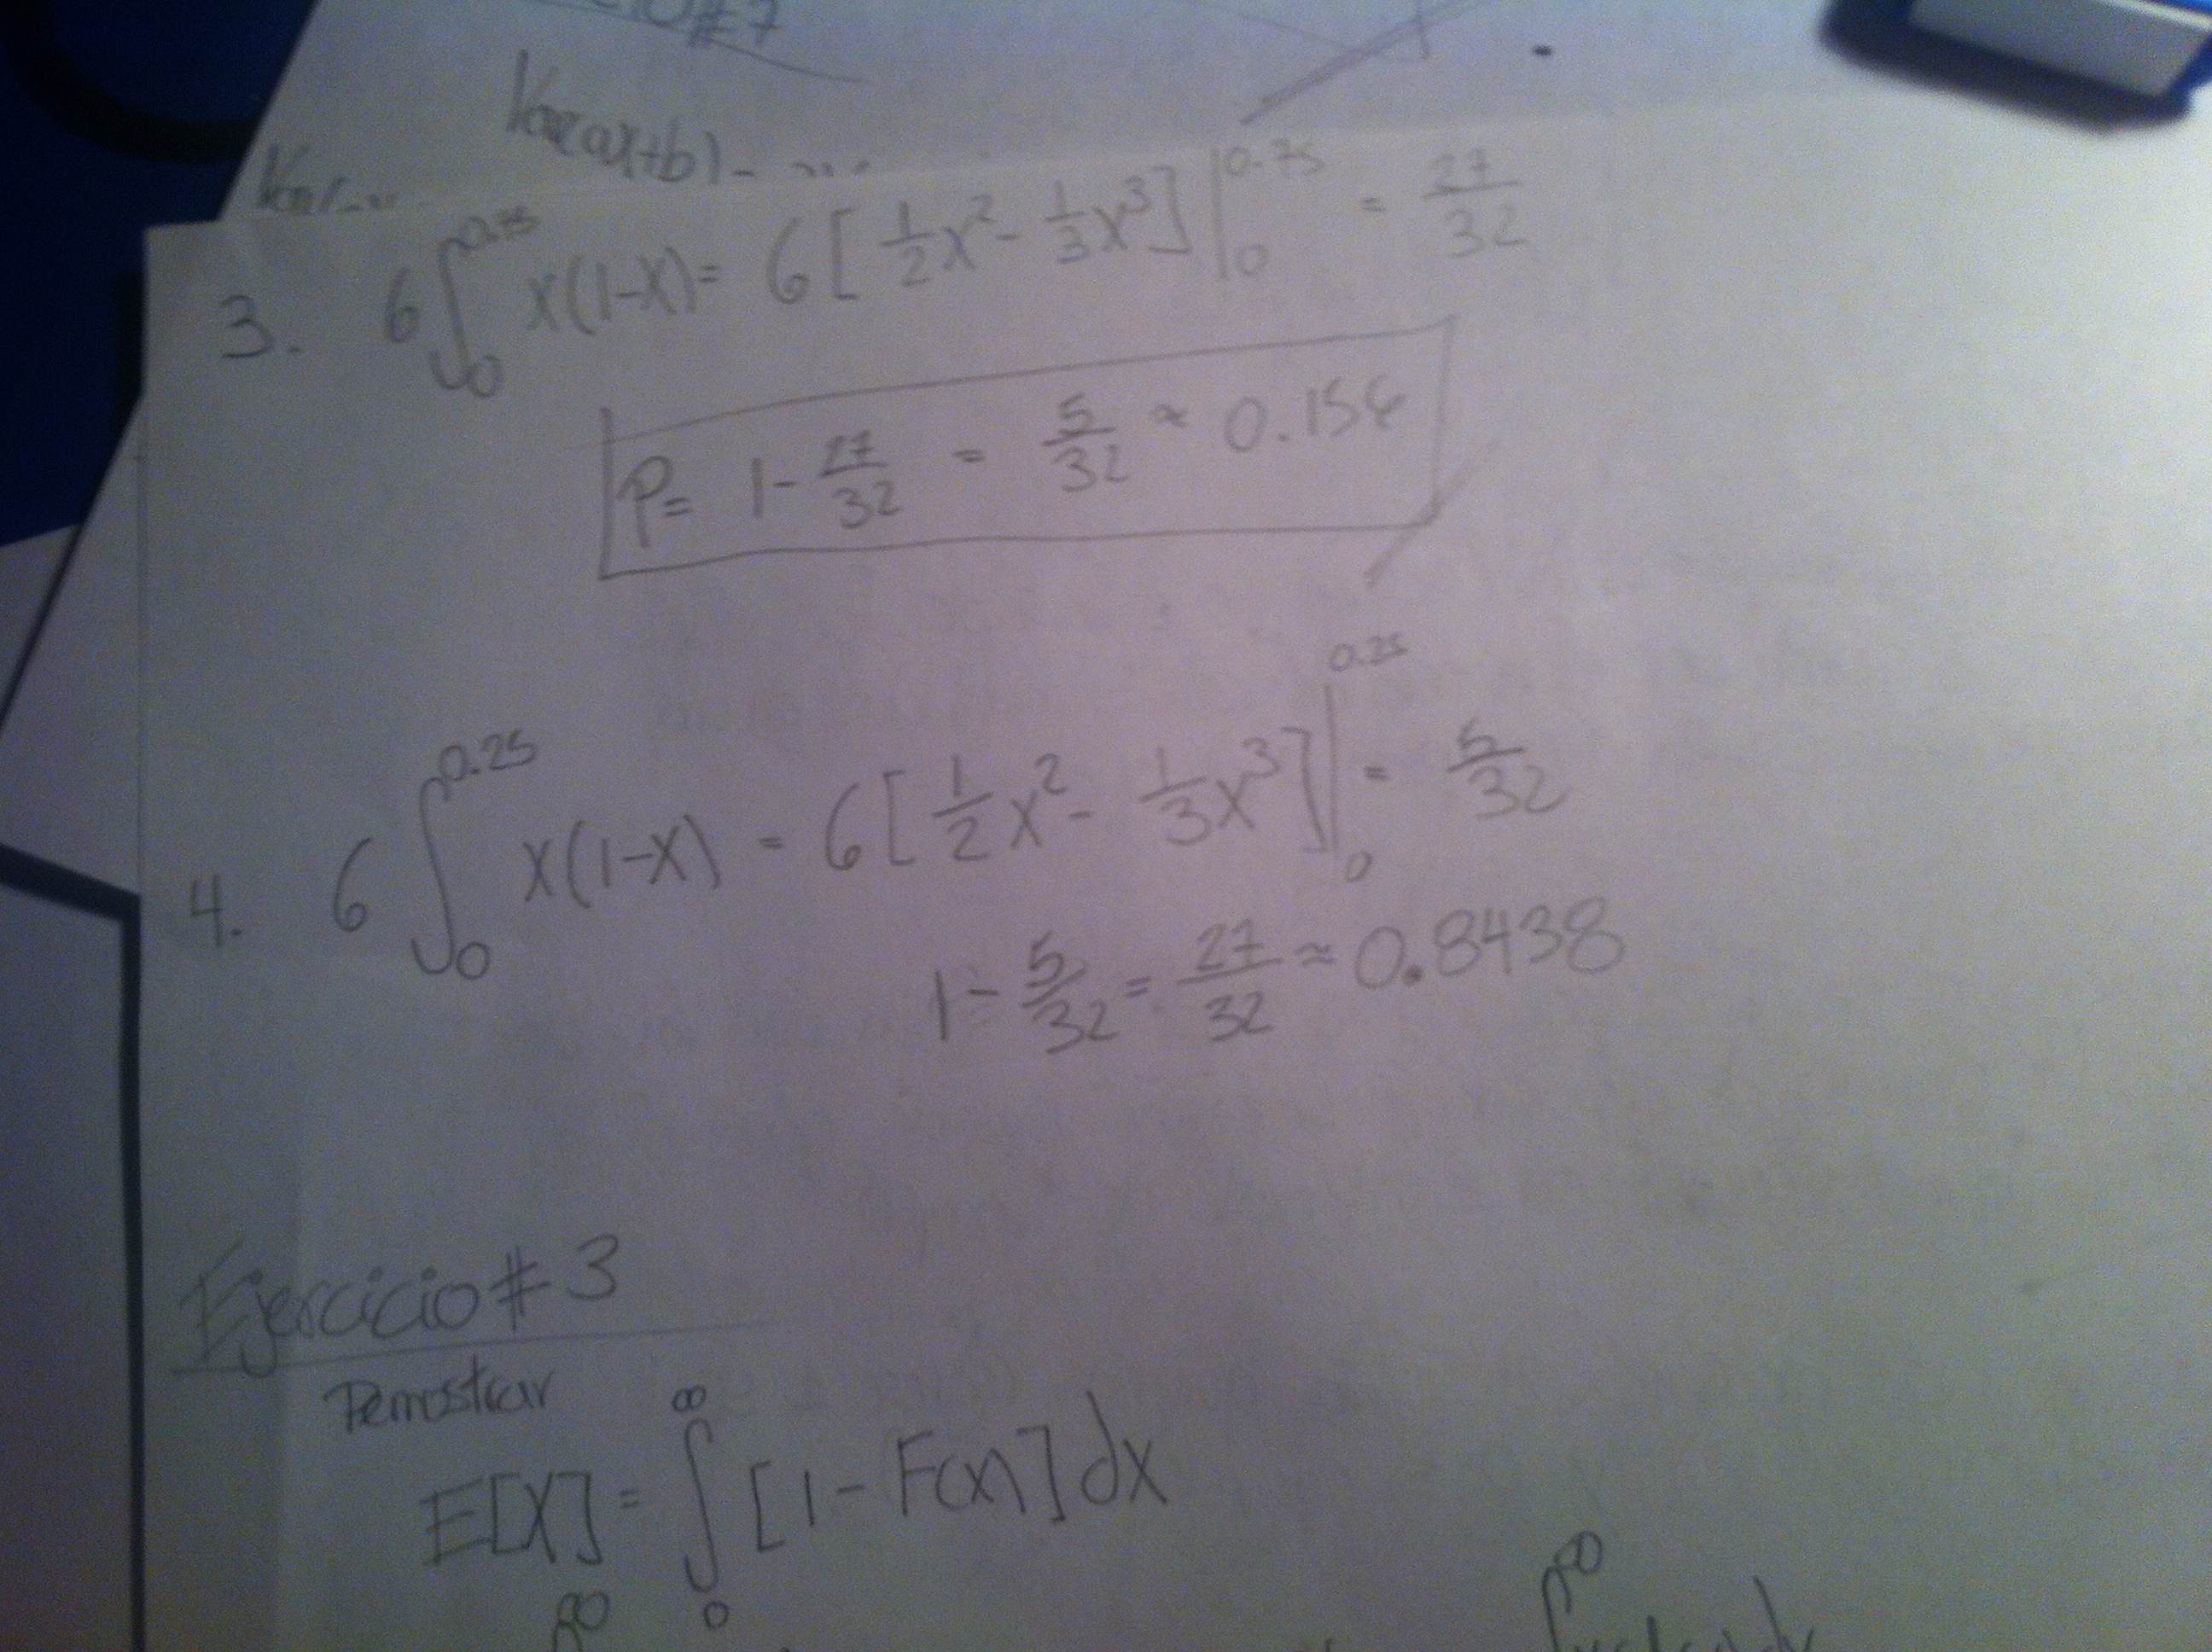 #7
Var(ax+b) =
3. 6∫₀^0.75 x(1-x) = 6[½x² - ⅓x³]|₀^0.75 = 27/32
P = 1 - 27/32 = 5/32 ≈ 0.156
4. 6∫₀^0.25 x(1-x) = 6[½x² - ⅓x³]|₀^0.25 = 5/32
1 - 5/32 = 27/32 ≈ 0.8438
Ejercicio #3
Demostrar
E[X] = ∫₀^∞ [1 - F(x)]dx
∞ ∫^∞